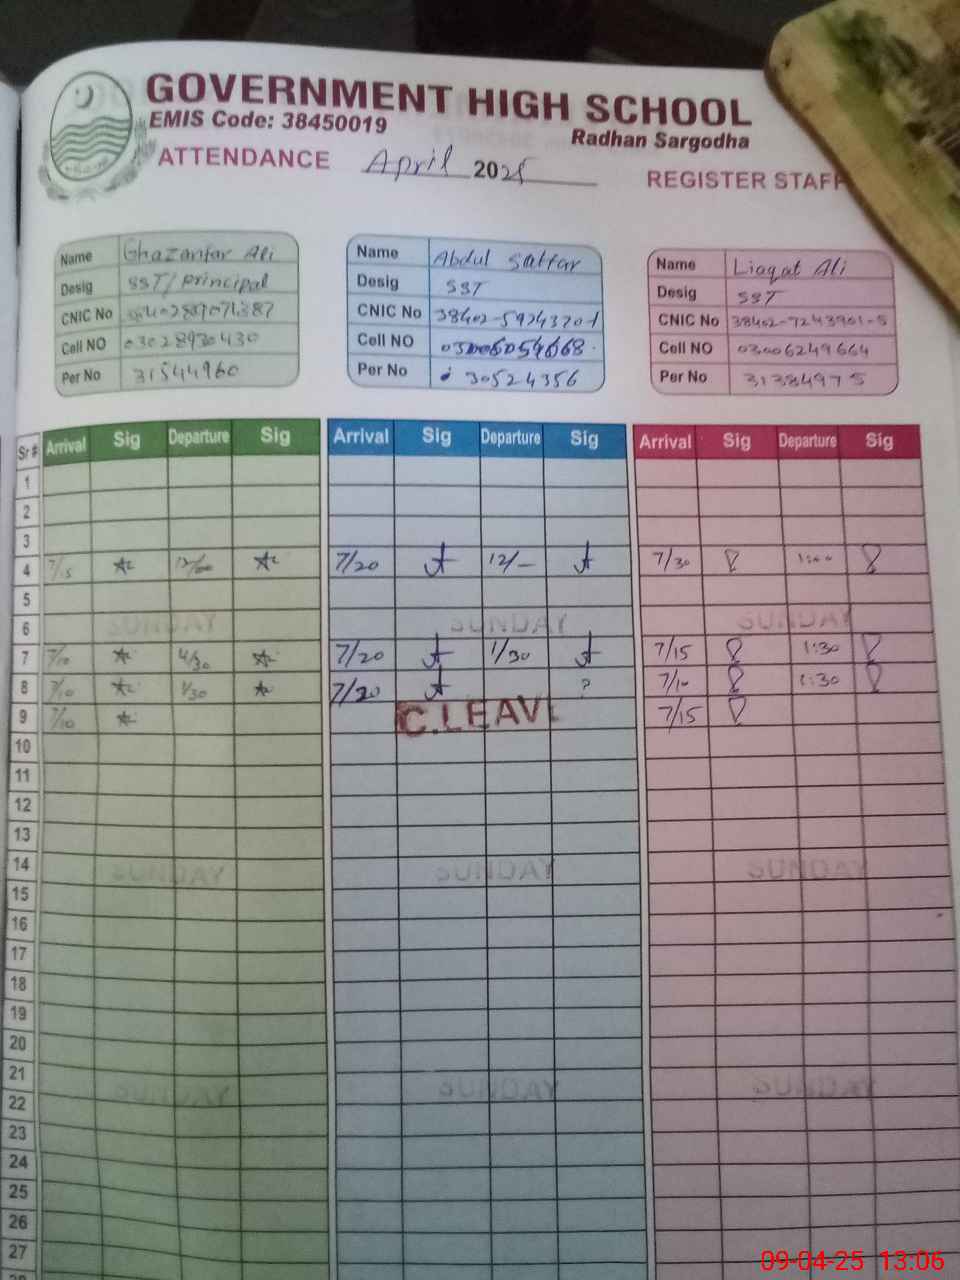 GOVERNMENT HIGH SCHOOL
EMIS Code: 38450019
Radhan Sargodha
ATTENDANCE April 2025
REGISTER STAFF
Name Ghazanfar Ali
Desig SST/principal
CNIC No
Cell NO 03028930430
Per No 31544960
Name Abdul Sattar
Desig SST
CNIC No 38402-5924320-1
Cell NO 03006054668
Per No 30524356
Name Liaqat Ali
Desig SST
CNIC No 38402-7243901-5
Cell NO 03006249664
Per No 31384975
Sr# Arrival Sig Departure Sig Arrival Sig Departure Sig Arrival Sig Departure Sig
1
2
3
4 7/15 12/00 7/20 12/- 7/30 1:00
5
6 SUNDAY SUNDAY SUNDAY
7 7/10 7/20 1/30 7/15 1:30
8 7/10 1/30 7/20 ? 7/10 1:30
9 7/10 C.LEAVE 7/15
10
11
12
13
14 SUNDAY SUNDAY SUNDAY
15
16
17
18
19
20
21 SUNDAY SUNDAY SUNDAY
22
23
24
25
26
27
09-04-25 13:06